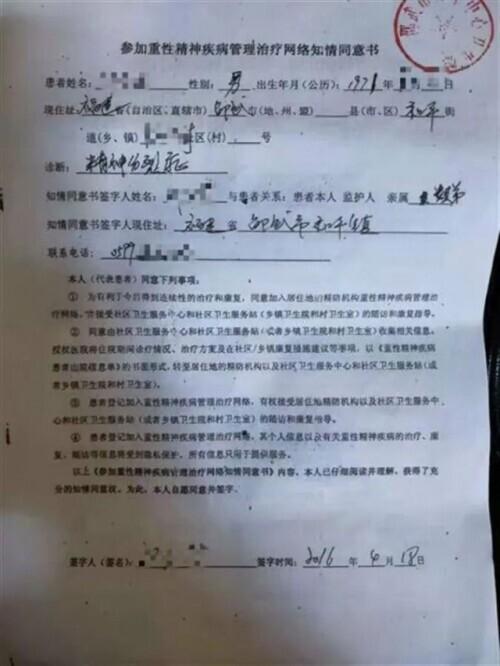 参加重性精神疾病管理治疗网络知情同意书
患者姓名: 性别:男 出生年月(公历):1971年 日
现住址福建省(自治区、直辖市)邵武市(地、州、盟) 县(市、区)和平街
道(乡、镇) 社区(村) 号
诊断:精神分裂症
知情同意书签字人姓名: 与患者关系:患者本人 监护人 亲属
知情同意书签字人现住址:福建省邵武市和平镇
联系电话:0599
本人(代表患者)同意下列事项:
① 为有利于今后得到连续性的治疗和康复,同意加入居住地的精防机构重性精神疾病管理治
疗网络,并接受社区卫生服务中心和社区卫生服务站(乡镇卫生院和村卫生室)的随访和康复指导。
② 同意由社区卫生服务中心和社区卫生服务站(或者乡镇卫生院和村卫生室)收集相关信息,
授权医院将住院期间诊疗情况、治疗方案及在社区/乡镇康复措施建议等事项,以《重性精神疾病
患者出院信息单》的书面形式,转至居住地的精防机构以及社区卫生服务中心和社区卫生服务站(或
者乡镇卫生院和村卫生室)。
③ 患者登记加入重性精神疾病管理治疗网络,有权接受居住地精防机构以及社区卫生服务中
心和社区卫生服务站(或者乡镇卫生院和村卫生室)的随访和康复指导。
④ 患者登记加入重性精神疾病管理治疗网络,其个人信息以及有关重性精神疾病的治疗、康
复、随访等信息将受到隐私保护,所有信息只用于提供服务。
以上《参加重性精神疾病管理治疗网络知情同意书》内容,本人已仔细阅读并理解,获得了充
分的知情同意权,为此,本人自愿同意并签字。
签字人(签名): 签字时间:2016年4月18日